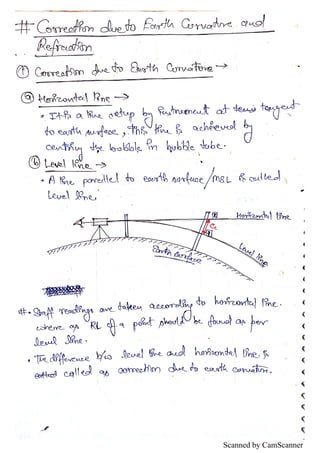 # Correction due to Earth Curvature and
Refraction
① Correction due to Earth Curvature →
ⓐ Horizontal line →
• It is a line setup by Instrument at tangent
to earth surface, this line is achieved by
centring the bubble in bubble tube.
ⓑ Level line →
• A line parellel to earth surface/MSL is called
Level line.
Horizontal line
Cc
Level line
Earth surface
#• Staff readings are taken according to horizontal line.
where as RL of a point should be found as per
level line.
• The difference b/w level line and horizontal line is
called as correction due to earth curvature.
Scanned by CamScanner